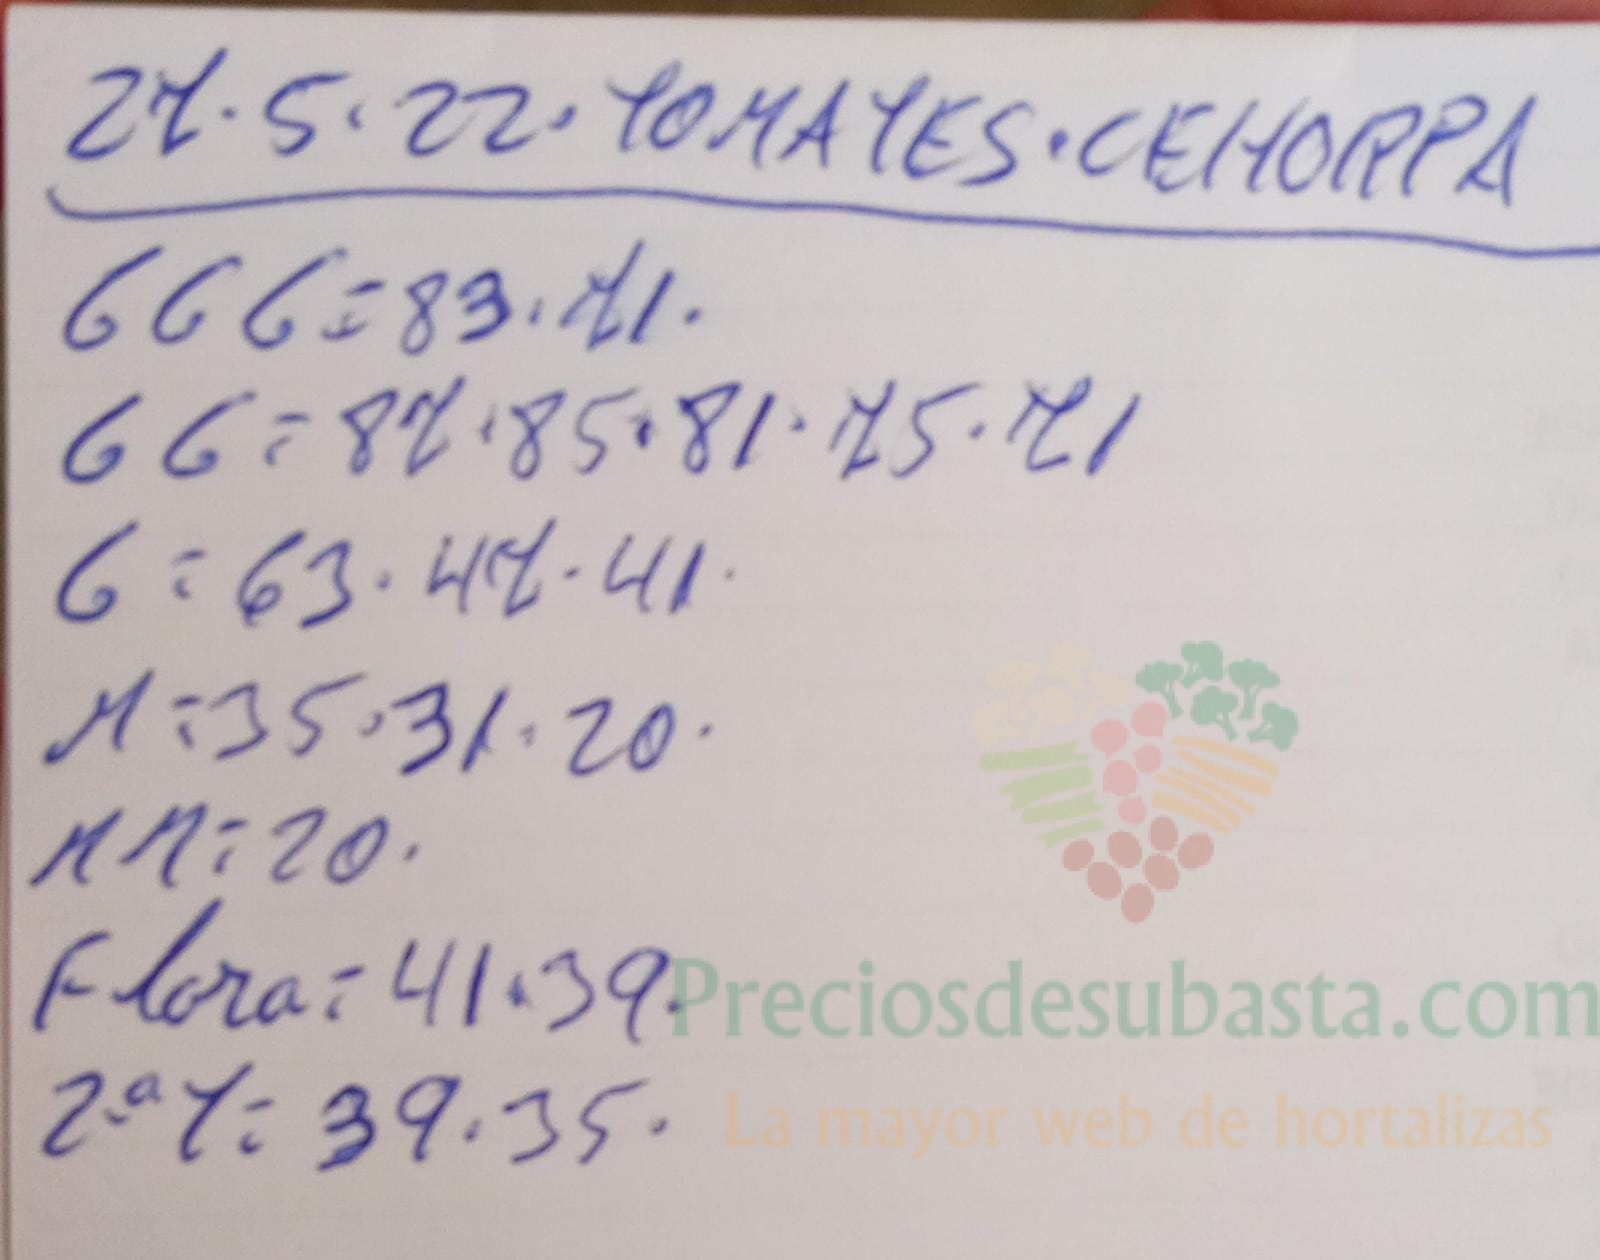 27.5.22. TOMATES. CEHORPA
GGG = 83. 71.
GG = 87. 85. 81. 75. 71
G = 63. 47. 41.
M = 35. 31. 20.
MM = 20.
Flora = 41. 39.
2ª T = 39. 35.
Preciosdesubasta.com
La mayor web de hortalizas